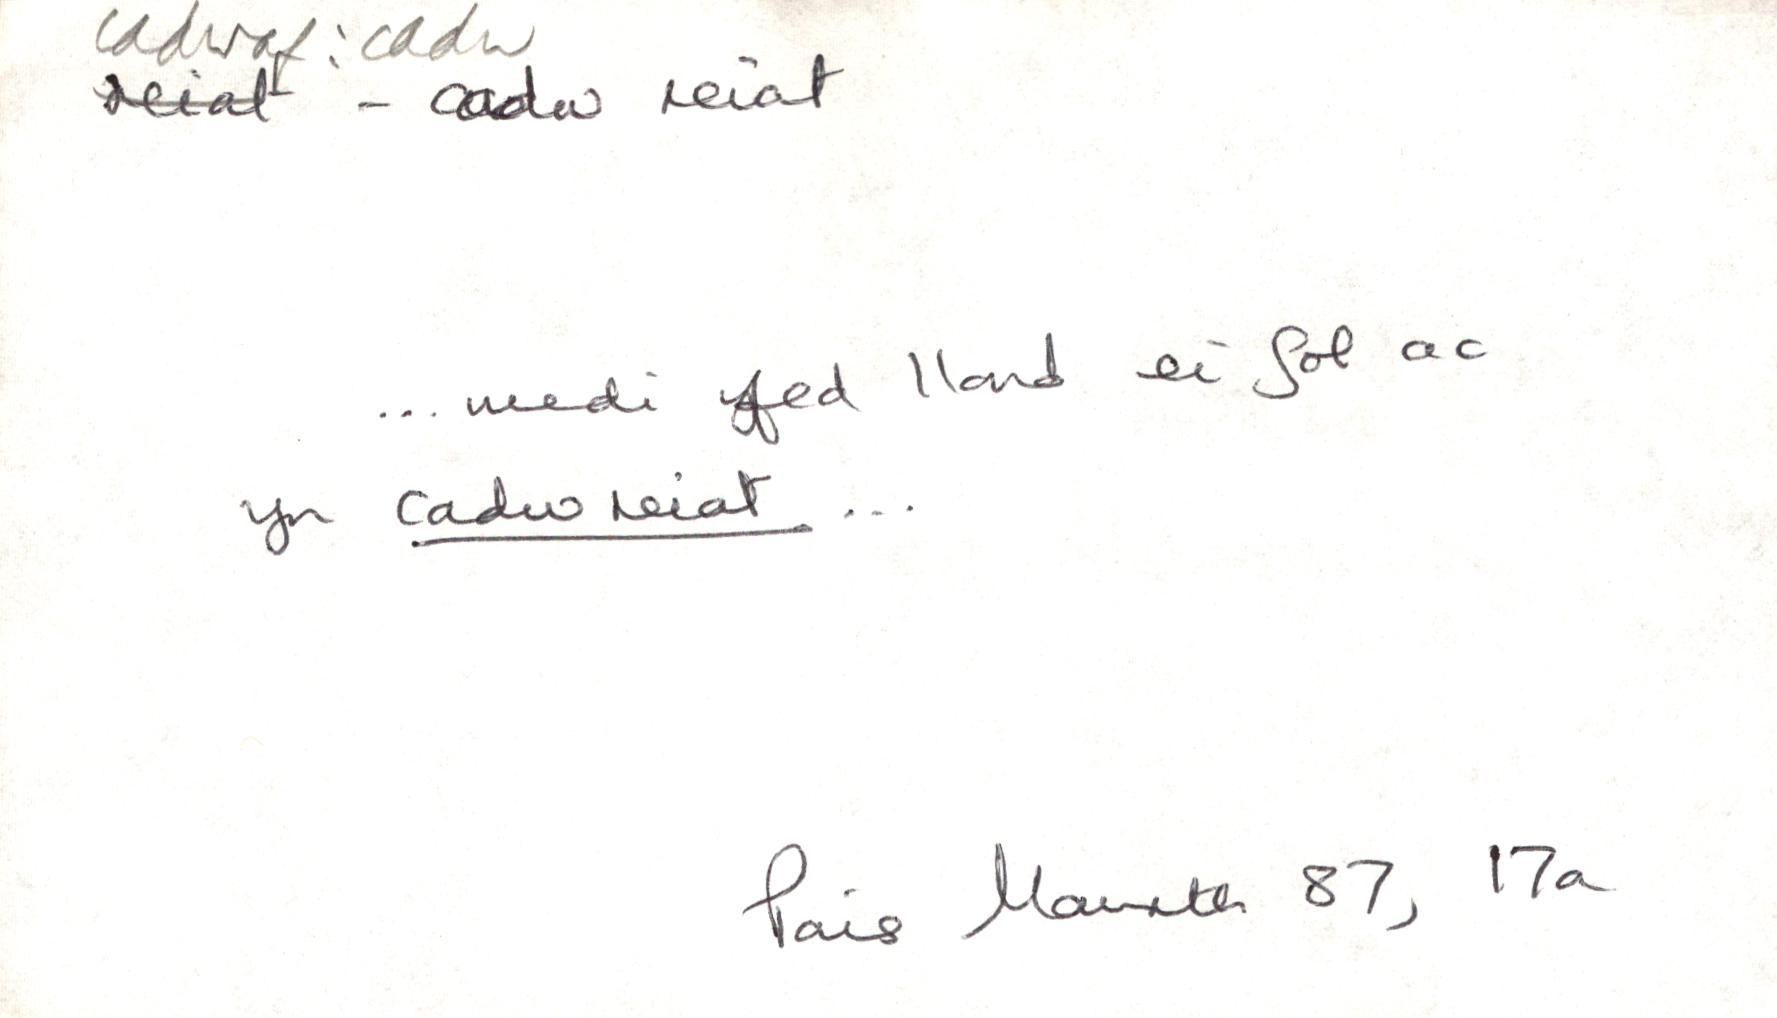 cadwaf: cadw
reiat - cadw reiat
... wedi yfed llond ei fol ac
yn cadw reiat ...
Pais Mawrth 87, 17a